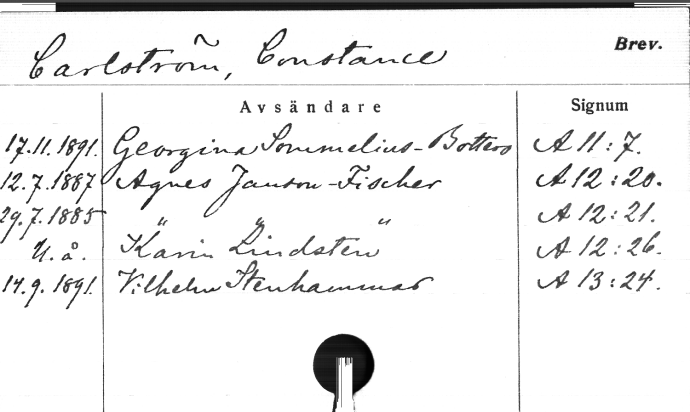 Carlström, Constance Brev.
Avsändare Signum
17.11.1891. Georgina Sommelius-Bottero A 11:7.
12.7.1887 Agnes Janson-Fischer A 12:20.
29.7.1885 " " " A 12:21.
U.å. Karin Lindsten A 12:26.
14.9.1891. Vilhelm Stenhammar A 13:24.